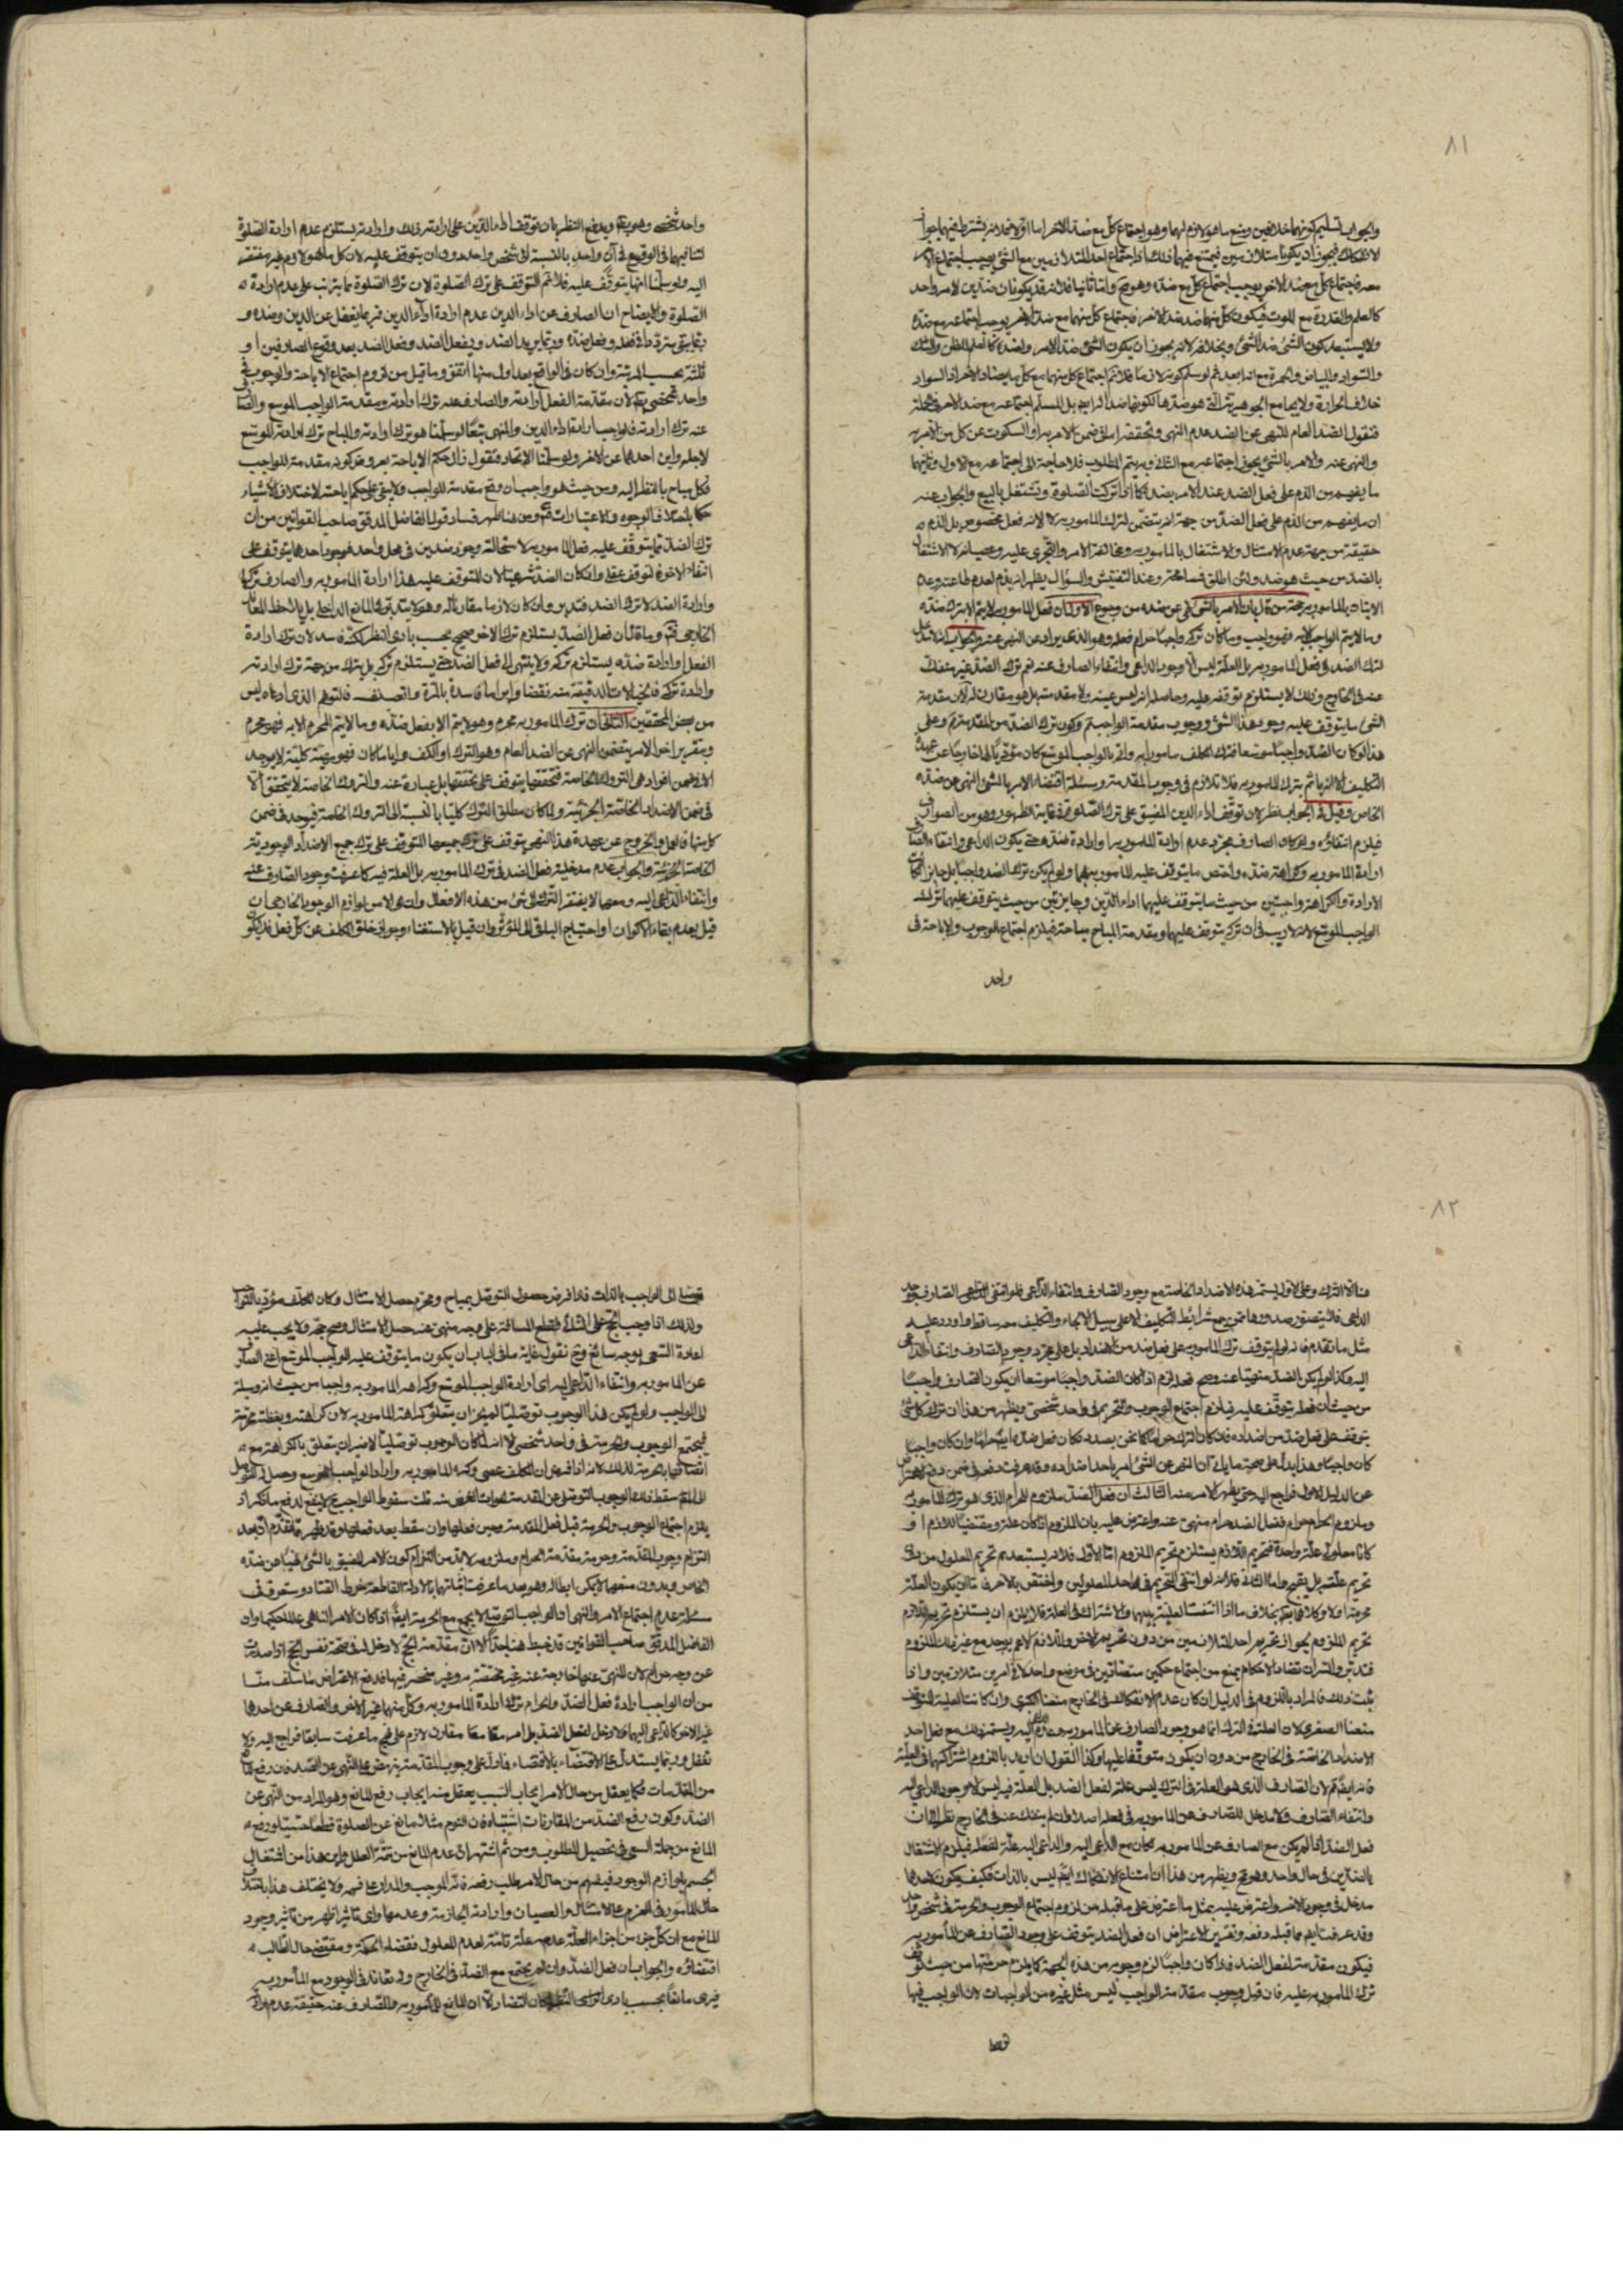 ٨١
والجواب تسليم كونهما خلافين ومنع ما هو لازم لهما وهو اجتماع كل مع ضد الآخر اما اولا فلانه يشترط فيهما جواز
الانفكاك فيجوز ان يكونا متلازمين فيمتنع فيهما ذلك اذ اجتماع احد المتلازمين مع الشئ يوجب اجتماع الآخر
معه فاجتماع كل مع ضد الآخر يوجب اجتماع كل مع ضده وهو مح واما ثانيا فلانه قد يكونان ضدين لامر واحد
كالعلم والقدرة مع الموت فيكون كل منهما ضد ضد الآخر فاجتماع كل منهما مع ضد الآخر يوجب اجتماعه مع ضده
ولا يستبعد كون الشئ ضد الشئ وبخلافه لانه يجوز ان يكون الشئ ضد الامر ولضده كالعلم للظن والشك
والسواد والبياض والحمرة مع انه بعد ثم لو سلم كونه لازما فلا ثم اجتماع كل منهما مع كل ما يضاد الآخر اذ السواد
خلاف الحرارة ولا يجامع الجوهرية التي هو ضدها لكونها ضدا لزايهم بل المسلم اجتماعه مع ضد الآخر في الجملة
فنقول الضد العام للنهي عن الضد عدم النهي وتحققه اما في ضمن الامر به او السكوت عن كل من الامر به
والنهي عنه والامر بالشئ يجوز اجتماعه مع الثاني وبه يتم المطلوب فلا حاجة الى اجتماعه مع الاول وثانيهما
ما يفهم من الذم على فعل الضد عند الامر بضده كما اذا تركت الصلوة وتشتغل بالبيع والجواب عنه
ان ما يفهم من الذم على فعل الضد من جهة انه يتضمن لترك المامور به لا لانه فعل مخصوص بل الذم له
حقيقة من جهة عدم الامتثال والاشتغال بالمامور به ومخالفة الامر والتجري عليه وعصيانه لا الاشتغال
بالضد من حيث هو ضد ولئن اطلق فمسامحة وعند التفتيش والسؤال يظهر انه يذم لعدم طاعته وعدم
الاتيان بالمامور به حجة من قال بان الامر بالشئ نهي عن ضده من وجوه الاول ان فعل المامور به لا يتم الا بترك ضده
وما لا يتم الواجب الا به فهو واجب وما كان تركه واجبا حرام فعله وهو الذي يراد عن النهي عنه والجواب انه لا مدخل
لترك الضد في فعل المامور به بل العلة ليس الا وجود الداعي وانتفاء الصارف عنه نعم ترك الضد غير منفك
عنه في الخارج وذلك لا يستلزم توقفه عليه وحاصله انه ليس عينه ولا مقدمته بل هو مقارن له لان مقدمة
الشئ ما يتوقف عليه وجود هذا الشئ ووجوب مقدمة الواجب ثم وكون ترك الضد من المقدمة ثم وعلى
هذا لو كان الضد واجبا موسعا فترك المكلف مامورا به واتى بالواجب الموسع كان مؤديا له خارجا عن عهدة
التكليف الا انه ياثم بترك المامور به فلا تلازم في وجوب المقدمة ومسئلة اقتضاء الامر بالشئ النهي عن ضده
الخاص وقيل في الجواب نظر لان توقف اداء الدين المضيق على ترك الصلوة في غاية الظهور وهو من الصوارف
فيلزم انتفاؤه ولو كان الصارف مجرد عدم ارادة المامور به او ارادة ضده حتى يكون الداعي وانتفاء الصارف
ارادة المامور به وكراهة ضده واختص ما يتوقف عليه المامور به بهما ولو لم يكن ترك الضد واجبا بل جايز لكانت
الارادة والكراهة واجبتين من حيث ما يتوقف عليهما اداء الدين وجايزتين من حيث يتوقف عليهما ترك
الواجب الموسع لانه لا ريب في ان تركه يتوقف عليهما ومقدمة المباح مباحة فيلزم اجتماع الوجوب والاباحة في
واحد
واحد شخصي وهو مح ويدفع النظر بان توقف اداء الدين على ارادته وذلك وارادته يستلزم عدم ارادة الصلوة
لتنافيهما في الوقوع في آن واحد بالنسبة الى شخص واحد بدون ان يتوقف عليه لان كل ما هو لازم غير مفتقر
اليه ولو سلمنا انها يتوقف عليه فلا ثم التوقف على ترك الصلوة لان ترك الصلوة مما يترتب على عدم ارادة
الصلوة والايضاح ان الصارف عن اداء الدين عدم ارادة اداء الدين فربما يغفل عن الدين وضده و
ربما يبقى متردد في فعله وفعل ضده وربما يريد الضد ويفعل الضد وفعل الضد بعد وقوع الصارفين او
ثلثة بحسب المرتبة وان كان في الواقع بعد اول منها اتفق وما قيل من لزوم اجتماع الاباحة والوجوب في
واحد شخصي ثم لان مقدمة الفعل ارادته والصارف عنه ترك ارادته ومقدمة الواجب الموسع والصارف
عنه ترك ارادته فالواجب ارادة اداء الدين والمنهي تبعا لو سلمنا هو ترك ارادته والمباح ترك ارادة الموسع
لاجله واين احدهما عن الآخر ولو سلمنا الاتحاد فنقول زال حكم الاباحة بعروض كونه مقدمة للواجب
فكل مباح بالنظر اليه ومن حيث هو واجب ان وقع مقدمة للواجب ولا يبقى على حكم اباحته لاختلاف الاشياء
حكما باختلاف الوجوه والاعتبارات ثم ومن هنا ظهر فساد قول الفاضل المدقق صاحب القوانين من ان
ترك الضد مما يتوقف عليه فعل المامور به لاستحالة وجود ضدين في محل واحد فوجود احدهما يتوقف على
انتفاء الآخر فالتوقف عقلي وان كان الضد شرعيا لان المتوقف عليه هذا ارادة المامور به والصارف تركها
وارادة الضد لا ترك الضد فتدبر وان كان لازما مقارنا له وهو لا يتدبر المانع الداخلي بل يلاحظ المعاند
الخارجي ثم وما قال ان فعل الضد يستلزم ترك الآخر صحيح بحسب بادي النظر لكنه فاسد لان ترك ارادة
الفعل او ارادة ضده يستلزم تركه ولا ينتهي الى فعل الضد حتى يستلزم تركه بل يترك من جهة ترك ارادته
من بعض المحققين الثاني ان ترك المامور به محرم وهو لا يتم الا بفعل ضده وما لا يتم المحرم الا به فهو محرم
وبتقرير آخر الامر يتضمن النهي عن الضد العام وهو الترك او الكف وايا ما كان فهو مهية كلية لا يوجد
الا في ضمن افراده في التروك الخاصة فتحققها يتوقف على تحققها بل عبارة عنه والتروك الخاصة لا يتحقق الا
في ضمن الاضداد الخاصة الجزئية ولما كان مطلق الترك كليا بالنسبة الى التروك الخاصة فيوجد في ضمن
كل منها فالعمل والخروج عن عهدة هذا النهي يتوقف على ترك جميعها المتوقف على ترك جميع الاضداد الوجودية
الخاصة الجزئية والجواب عدم مدخلية فعل الضد في ترك المامور به بل العلة فيه كما عرفت وجود الصارف عنه
وانتفاء الداعي اليه ومعهما لا يفتقر الترك الى شئ من هذه الافعال وانما هي من لوازم الوجود الخارجي ان
قيل بعدم بقاء الاكوان او احتياج الباقي الى المؤثر وان قيل بالاستغناء وجواز خلو المكلف عن كل فعل فلا يكون
٨٢
هناك الا الترك وعلى الاول يستمر هذه الاضداد الخاصة مع وجود الصارف وانتفاء الداعي فلو انتفى الصارف ووجد
الداعي فلا يتصور صدورها ممن جمع شرائط التكليف الا على سبيل الالجاء والتكليف معه ساقط واورد عليه
مثل ما تقدم فانه لو لم يتوقف ترك المامور به على فعل ضد من الاضداد بل على مجرد وجود الصارف وانتفاء الداعي
اليه وكذا لو لم يكن الضد منهيا عنه وصح فعله لزم اذا كان الضد واجبا موسعا ان يكون الصارف واجبا
من حيث ان فعله يتوقف عليه فيلزم اجتماع الوجوب والتحريم في واحد شخصي ويظهر من هذا ان ترك كل شئ
يتوقف على فعل ضد من اضداده فان كان الترك حراما كما نحن بصدده كان فعل ضده ايضا حراما وان كان واجبا
كان واجبا وهذا يدل على صحة ما يقال ان النهي عن الشئ امر باحد اضداده وقد عرفت دفعه في ضمن دفع الاعتراض
عن الدليل الاول فراجع اليه حتى يظهر الامر منه الثالث ان فعل الضد ملزوم للحرام الذي هو ترك المامور به
وملزوم الحرام حرام ففعل الضد حرام منهي عنه واعترض عليه بان الملزوم اذا كان علة ومقتضيا للازم او
كانا معلولي علة واحدة فتحريم اللازم يستلزم تحريم الملزوم اما الاول فلانه يستبعد تحريم المعلول من دون
تحريم علته بل يقبح واما الثاني فلانه لو انتفى التحريم في احد المعلولين واختص بالآخر فاما ان يكون العلة
محرمة او لا وكلاهما ثم بخلاف ما اذا انتفت العلية بينهما والاشتراك في العلة فلا يلزم ان يستلزم تحريم اللازم
تحريم الملزوم بجواز تحريم احد المتلازمين من دون تحريم الآخر واللازم الاعم يوجد مع غير ذلك الملزوم
فتدبر والسر ان تضاد الاحكام يمنع من اجتماع حكمين متضادين في موضع واحد لا في امرين متلازمين واذا
ثبت ذلك فالمراد باللزوم في الدليل ان كان عدم الانفكاك في الخارج منعنا الكبرى وان كانت العلية التوقف
منعنا الصغرى لان العلة في الترك انما هو وجود الصارف عن المامور به وعدم الداعي اليه ويستمر ذلك مع فعل احد
الاضداد الخاصة في الخارج من دون ان يكون متوقفا عليها وكذا القول ان اريد باللزوم اشتراكهما في العلية
فانه ايضا ثم لان الصارف الذي هو العلة في الترك ليس علة لفعل الضد بل العلة فيه ليس الا وجود الداعي اليه
وانتفاء الصارف ولا مدخل للصارف عن المامور به في فعله اصلا وان لم ينفك عنه في الخارج نظرا الى ان
فعل الضد اذا لم يكن مع الصارف عن المامور به لكان مع الداعي اليه والداعي اليه علة لفعله فيلزم الاشتغال
بالضدين في حال واحد وهو مح ويظهر من هذا ان امتناع الانفكاك ايضا ليس بالذات فكيف يكون لاحدهما
مدخل في وجود الآخر واعترض عليه بمثل ما اعترض على ما قبله من لزوم اجتماع الوجوب والحرمة في شخص واحد
وقد عرفت ايضا مما قبله دفعه وتقرير الاعتراض ان فعل الضد يتوقف على وجود الصارف عن المأمور به
فيكون مقدمة لفعل الضد فاذا كان واجبا لزم وجوبه من هذه الجهة كما يلزم حرمتها من حيث توقف
ترك المامور به عليه فان قيل وجوب مقدمة الواجب ليس مثل غيره من الواجبات لان الواجب فيها
توصل
توصل الى الواجب بالذات فاذا فرض حصول التوصل بمباح ومحرم حصل الامتثال وكان المكلف مؤديا للواجب
ولذلك اذا وجب الحج على النائي فقطع المسافة على وجه منهي عنه حصل الامتثال وصح حجه ولا يجب عليه
اعادة السعي بوجه سائغ وح نقول غاية ما في الباب ان يكون ما يتوقف عليه الواجب الموسع اعني الصارف
عن المامور به وانتفاء الداعي اليه اي ارادة الواجب الموسع وكراهة المامور به واجبا من حيث انه وصلة
الى الواجب ولو لم يكن هذا الوجوب توصليا لم يجز ان يتعلق بكراهة المامور به لان كراهته وبغضه محرمة
فيجتمع الوجوب والحرمة في واحد شخصي الا انه لما كان الوجوب توصليا لا ضير ان يتعلق بالكراهة مع
اتصافها بالحرمة لذلك لانه اذا فرض ان المكلف عصى وكره المامور به واراد الواجب الموسع وحصل له التوصل
الى المقصد سقط ذلك الوجوب التوصلي عن المقدمة لفوات الغرض منه قلت سقوط الواجب ح لا ينفع لدفع ما ذكر اذ
يلزم اجتماع الوجوب والحرمة قبل فعل المقدمة وحين فعلها وان سقط بعد فعلها وقد ظهر مما تقدم ان بعد
التزام وجوب المقدمة وحرمة مقدمة الحرام وملزومه لا بد من التزام كون الامر المضيق بالشئ نهيا عن ضده
الخاص وبدون منعهما لا يمكن ابطاله وهو بعد ما عرفت اثباتهما بالادلة القاطعة خرط القتاد وستعرف في
مسئلة عدم اجتماع الامر والنهي ان الواجب التوصلي لا يجتمع مع الحرمة ايضا اذا كان الامر الناهي عدلا حكيما وان
الفاضل المدقق صاحب القوانين قد خبط هنا جدا كالا ان مقدمة الحج لا دخل له في صحة نفس الحج اذا صدرت
عن وجه حرام لان المنهي عنها خارجة عنه غير مختصة به وغير منحصر فيها فدفع الاعتراض ما سلف منا
من ان الواجب ارادة فعل الضد والحرام ترك ارادة المامور به وكل منهما غير الآخر والصارف عن احدهما
غير الآخر كالداعي اليهما فلا دخل لفعل الضد بل امر مقارن مقارن لازم على نهج ما عرفت سابقا فراجع اليه ولا
تغفل وربما يستدل على الاقتضاء بالاقتضاء فما دل على وجوب المقدمة ينهض على النهي عن الضد فان رفع المانع
من المقدمات فكما يعقل من حال الامر ايجاب السبب يعقل منه ايجاب رفع المانع وهو المراد من النهي عن
الضد وكون رفع الضد من المقارنات اشتباه فان النوم مثلا مانع عن الصلوة قطعا حسيا ورفع
المانع من جملة السعي في تحصيل المطلوب ومن ثم اشتهر ان عدم المانع من تتمة العلل واين هذا من اشتغال
الجسم بلوازم الوجود فيفهم من حال الامر طلب رفعه فانه الموجب والمدار على فهمه ولا يختلف هذا باختلاف
حال المأمور في العزم على الامتثال والعصيان وارادته الجازمة وعدمها واي تاثير اظهر من تاثير وجود
المانع مع ان كل جزء من اجزاء العلة عدمه علة تامة لعدم المعلول فقضاء الحكمة ومقتضى حال الطالب
اقتضاؤه والجواب ان فعل الضد وان لم يجتمع مع الضد في الخارج وله تعاند في الوجود مع المأمور به
فيرى مانعا بحسب بادي الرأي النظر لمكان التضاد الا ان المانع للمأمور به والصارف عنه حقيقة عدم ارادته